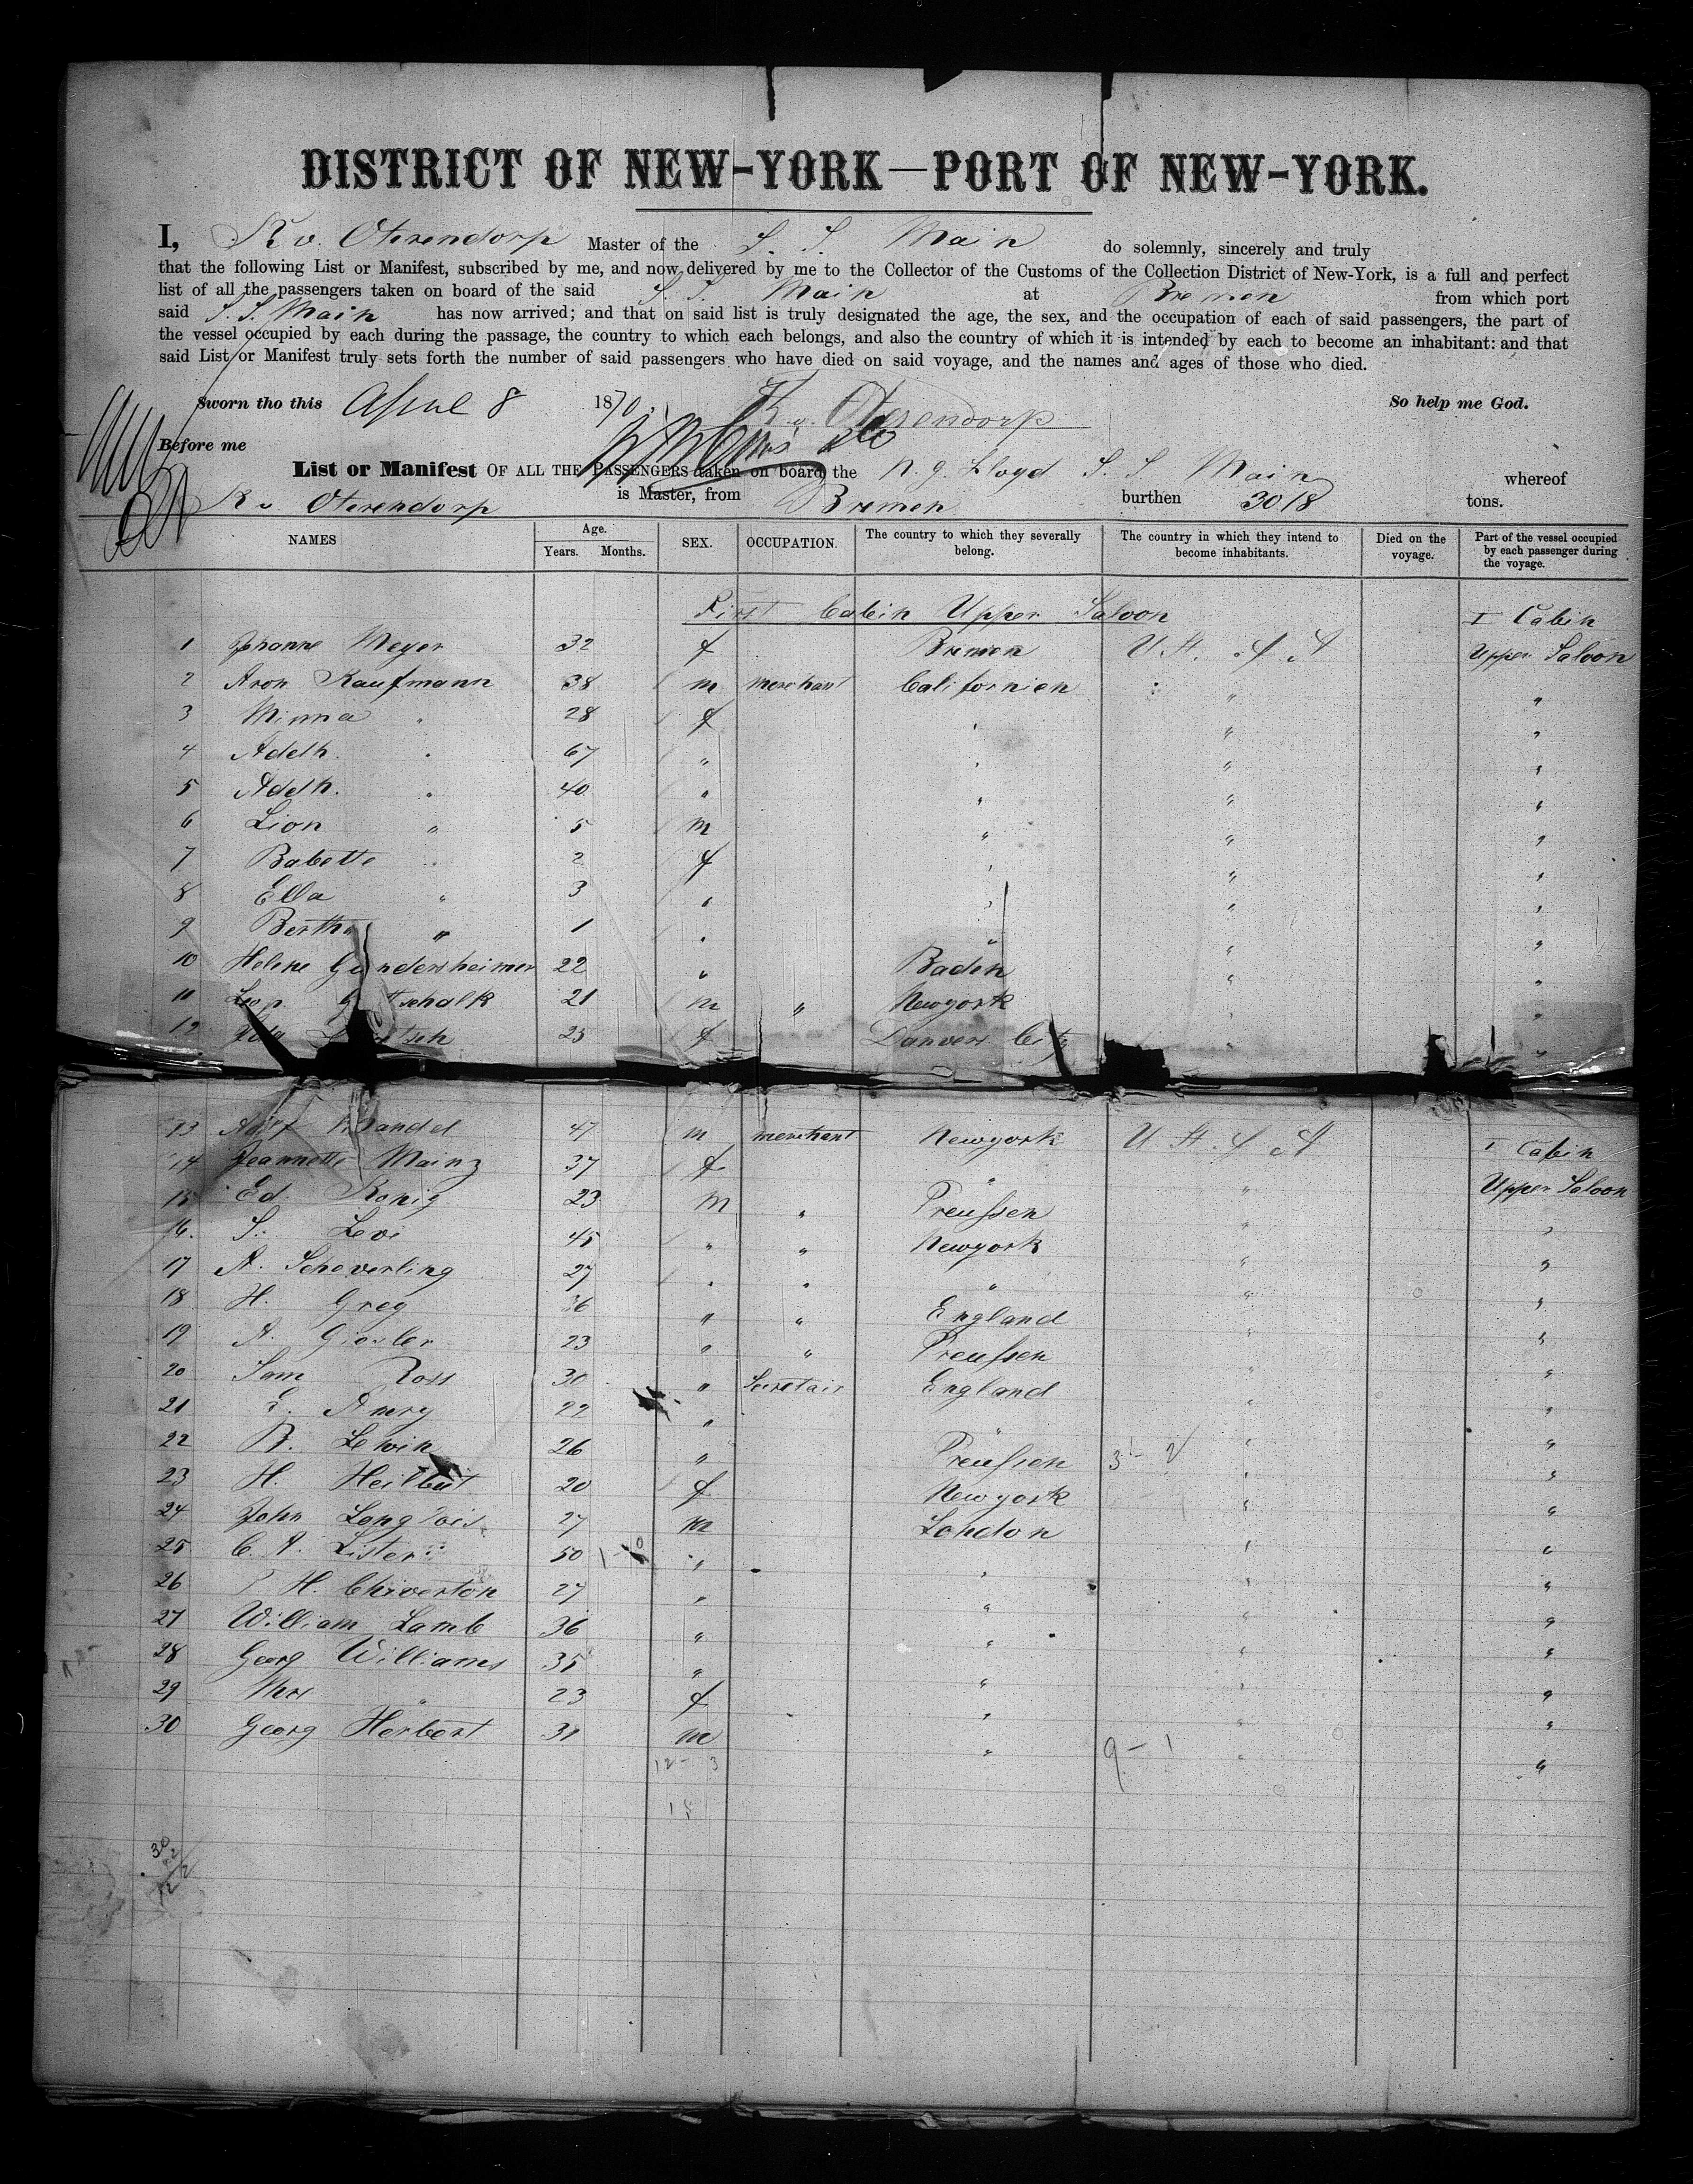 DISTRICT OF NEW-YORK—PORT OF NEW-YORK.
I, K v. Oterendorp Master of the S. S. Main do solemnly, sincerely and truly
that the following List or Manifest, subscribed by me, and now delivered by me to the Collector of the Customs of the Collection District of New-York, is a full and perfect
list of all the passengers taken on board of the said S. S. Main at Bremen from which port
said S. S. Main has now arrived; and that on said list is truly designated the age, the sex, and the occupation of each of said passengers, the part of
the vessel occupied by each during the passage, the country to which each belongs, and also the country of which it is intended by each to become an inhabitant: and that
said List or Manifest truly sets forth the number of said passengers who have died on said voyage, and the names and ages of those who died.
Sworn tho this April 8 1870. K. v. Oterendorp So help me God.
Before me
List or Manifest OF ALL THE PASSENGERS taken on board the N. g. Lloyd S. S. Main whereof
K v Oterendorp is Master, from Bremen burthen 3018 tons.
NAMES Age. Years. Months. SEX. OCCUPATION. The country to which they severally belong. The country in which they intend to become inhabitants. Died on the voyage. Part of the vessel occupied by each passenger during the voyage.
First Cabin Upper Saloon I Cabin
1 Johanne Meyer 32 f Bremen U St. of A Upper Saloon
2 Aron Kaufmann 38 m merchant Californien " "
3 Minna " 28 f " " "
4 Adelh. " 67 " " " "
5 Adelh. " 40 " " " "
6 Lion " 5 m " " "
7 Babette " 2 f " " "
8 Ella " 3 " " " "
9 Bertha " 1 " " " "
10 Helene Gundersheimer 22 " Baden " "
11 Leop. Gottschalk 21 m " Newyork " "
12 25 f Danvers City " "
13 47 m merchant Newyork U St. of A I Cabin
14 Jeannette Mainz 37 f " " Upper Saloon
15 Ed. König 23 m " Preußen " "
16. S. Levi 45 " " Newyork " "
17 A. Scheverling 27 " " " " "
18 H. Greg 36 " " England " "
19 A. Giesler 23 " " Preußen " "
20 Sam Ross 30 " Secretair England " "
21 E. Amery 22 " " " "
22 B. Lewin 26 " Preußen 3 - 2 " "
23 H. Heilbut 20 f Newyork " "
24 John Langlois 27 m London " "
25 C. A. Lister 50 " " " "
26 H. Chiverton 27 " " " "
27 William Lamb 36 " " " "
28 Georg Williams 35 " " " "
29 Mrs " 23 f " " "
30 Georg Herbert 31 m " 9 - 1 " "
12 - 3
15
30